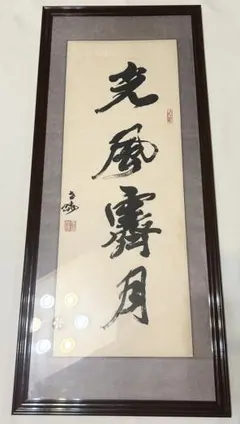 光風霽月